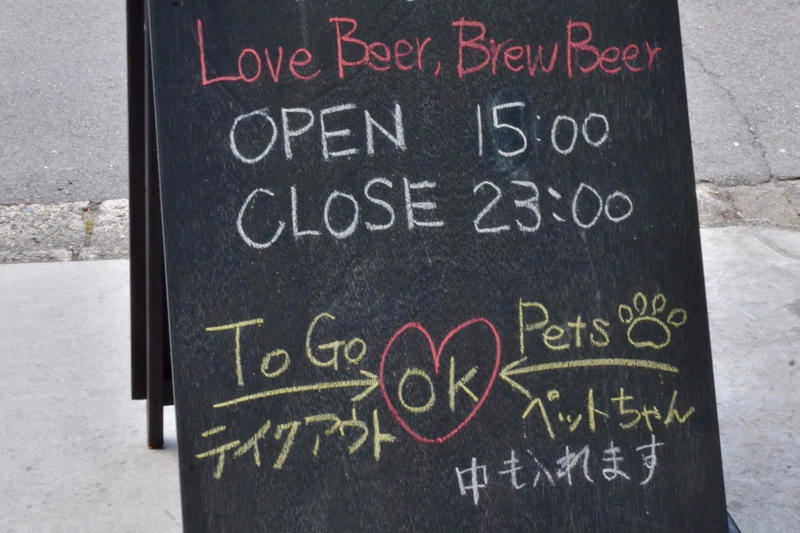 Love Beer, Brew Beer
OPEN 15:00
CLOSE 23:00
To Go OK Pets
テイクアウト ペットちゃん
中も入れます